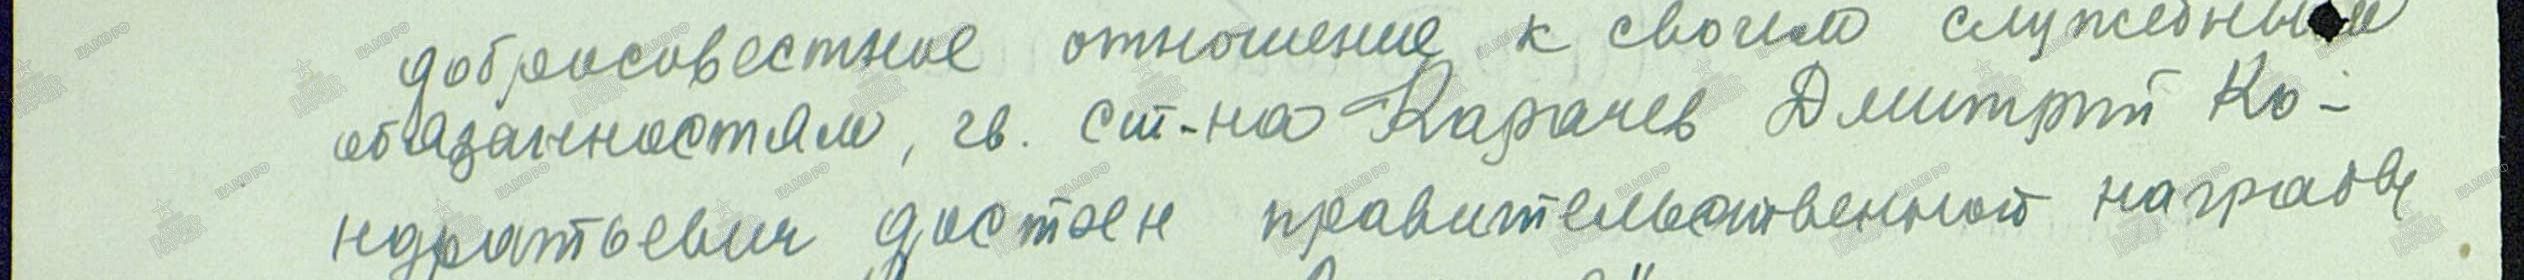 добросовестное отношение к своим служебным
обязанностям, гв. ст-на Карачев Дмитрий Ко-
ндратьевич достоен правительственной награды